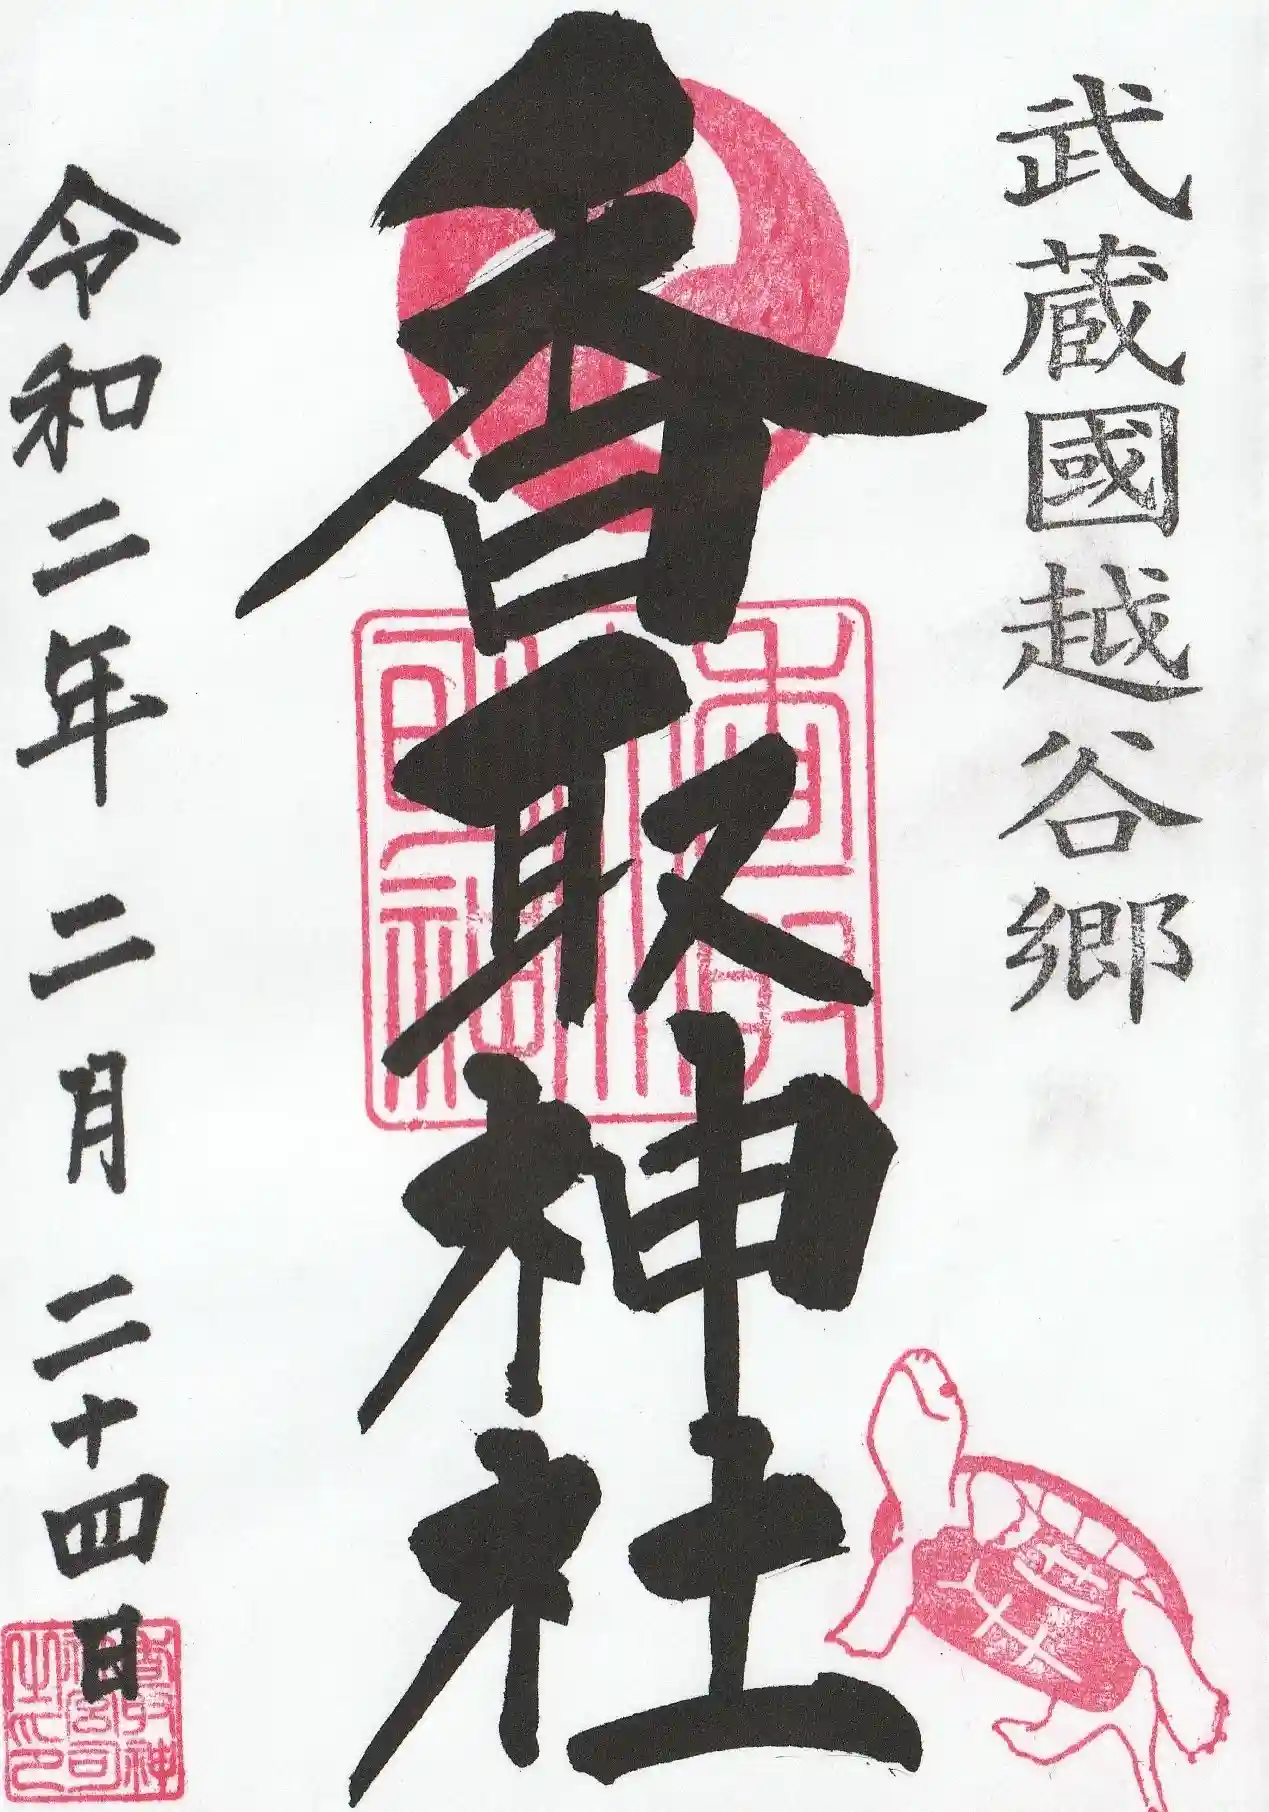 武蔵國越谷郷
香取神社
令和二年 二月 二十四日